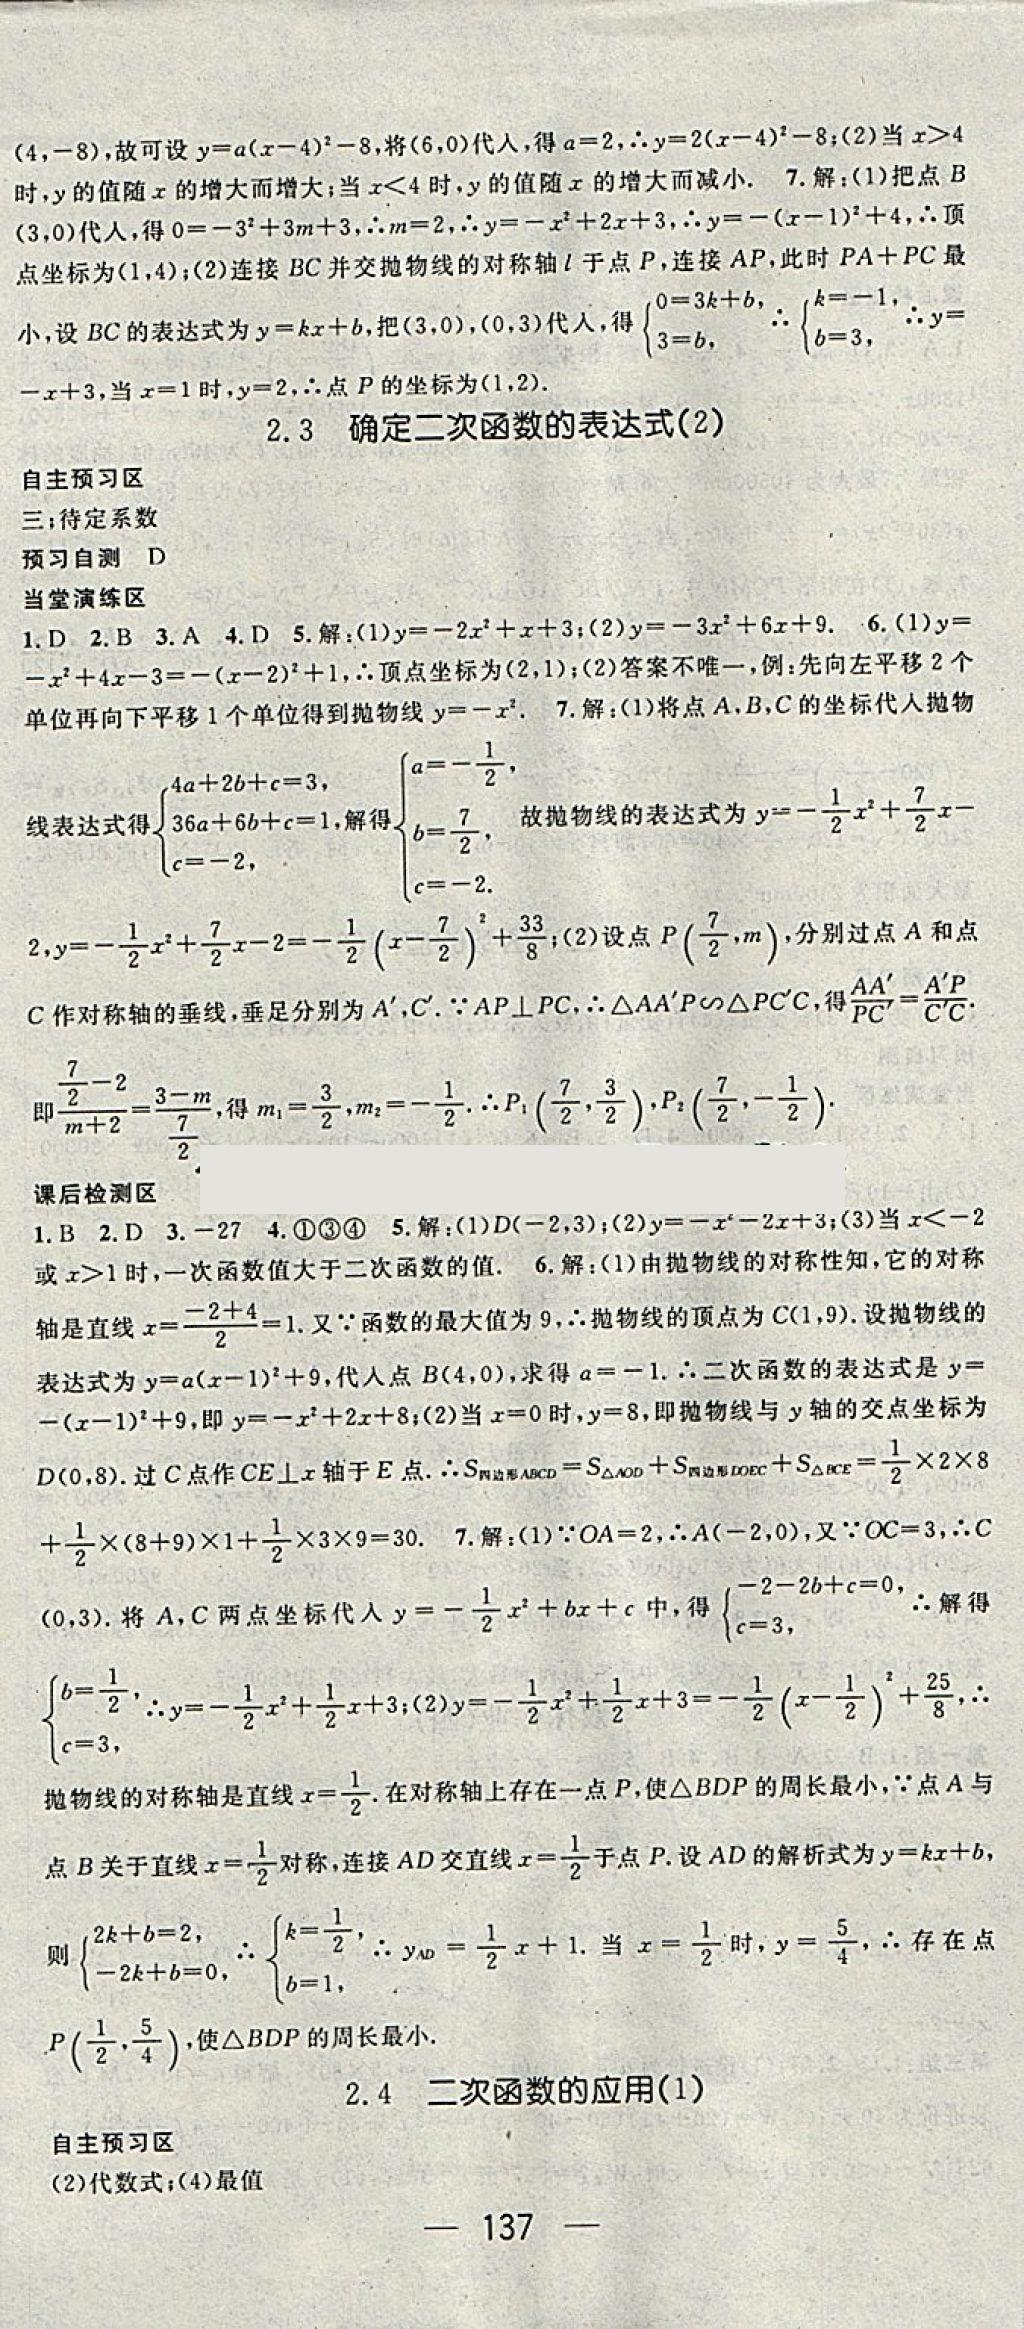 (4,-8),故可设 y=a(x-4)²-8,将(6,0)代入,得 a=2,∴y=2(x-4)²-8;(2)当 x>4
时,y 的值随 x 的增大而增大;当 x<4 时,y 的值随 x 的增大而减小. 7.解:(1)把点 B
(3,0)代入,得 0=-3²+3m+3,∴m=2,∴y=-x²+2x+3,∴y=-(x-1)²+4,∴顶
点坐标为(1,4);(2)连接 BC 并交抛物线的对称轴 l 于点 P,连接 AP,此时 PA+PC 最
小,设 BC 的表达式为 y=kx+b,把(3,0),(0,3)代入,得{0=3k+b, 3=b, ∴{k=-1, b=3, ∴y=
-x+3,当 x=1 时,y=2,∴点 P 的坐标为(1,2).
2.3 确定二次函数的表达式(2)
自主预习区
三;待定系数
预习自测 D
当堂演练区
1.D 2.B 3.A 4.D 5.解:(1)y=-2x²+x+3;(2)y=-3x²+6x+9. 6.(1)y=
-x²+4x-3=-(x-2)²+1,∴顶点坐标为(2,1);(2)答案不唯一,例:先向左平移 2 个
单位再向下平移 1 个单位得到抛物线 y=-x². 7.解:(1)将点 A,B,C 的坐标代入抛物
线表达式得{4a+2b+c=3, 36a+6b+c=1, c=-2, 解得{a=-1/2, b=7/2, c=-2. 故抛物线的表达式为 y=-1/2x²+7/2x-
2,y=-1/2x²+7/2x-2=-1/2(x-7/2)²+33/8;(2)设点 P(7/2,m),分别过点 A 和点
C 作对称轴的垂线,垂足分别为 A′,C′.∵AP⊥PC,∴△AA′P∽△PC′C,得AA′/PC′=A′P/C′C.
即(7/2-2)/(m+2)=(3-m)/(7/2),得 m₁=3/2,m₂=-1/2.∴P₁(7/2,3/2),P₂(7/2,-1/2).
课后检测区
1.B 2.D 3.-27 4.①③④ 5.解:(1)D(-2,3);(2)y=-x²-2x+3;(3)当 x<-2
或 x>1 时,一次函数值大于二次函数的值. 6.解:(1)由抛物线的对称性知,它的对称
轴是直线 x=(-2+4)/2=1.又∵函数的最大值为 9,∴抛物线的顶点为 C(1,9).设抛物线的
表达式为 y=a(x-1)²+9,代入点 B(4,0),求得 a=-1.∴二次函数的表达式是 y=
-(x-1)²+9,即 y=-x²+2x+8;(2)当 x=0 时,y=8,即抛物线与 y 轴的交点坐标为
D(0,8).过 C 点作 CE⊥x 轴于 E 点.∴S四边形ABCD=S△AOD+S四边形DOEC+S△BCE=1/2×2×8
+1/2×(8+9)×1+1/2×3×9=30. 7.解:(1)∵OA=2,∴A(-2,0),又∵OC=3,∴C
(0,3).将 A,C 两点坐标代入 y=-1/2x²+bx+c 中,得{-2-2b+c=0, c=3, ∴解得
{b=1/2, c=3, ∴y=-1/2x²+1/2x+3;(2)y=-1/2x²+1/2x+3=-1/2(x-1/2)²+25/8,∴
抛物线的对称轴是直线 x=1/2.在对称轴上存在一点 P,使△BDP 的周长最小,∵点 A 与
点 B 关于直线 x=1/2对称,连接 AD 交直线 x=1/2于点 P.设 AD 的解析式为 y=kx+b,
则{2k+b=2, -2k+b=0, ∴{k=1/2, b=1, ∴yAD=1/2x+1.当 x=1/2时,y=5/4,∴存在点
P(1/2,5/4),使△BDP 的周长最小.
2.4 二次函数的应用(1)
自主预习区
(2)代数式;(4)最值
— 137 —